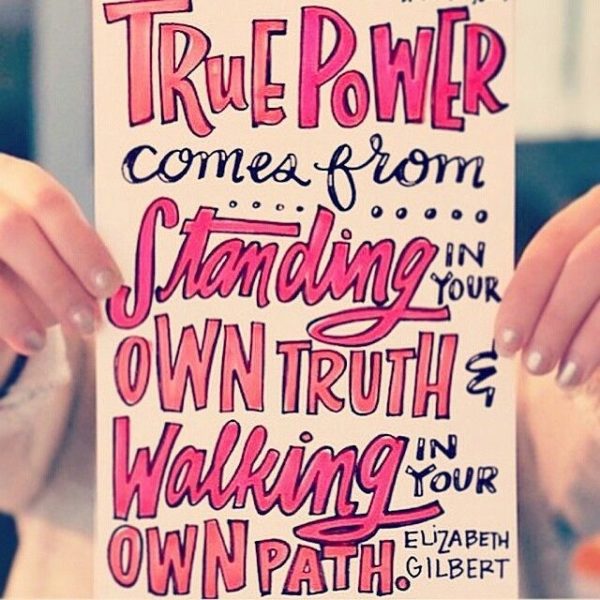 TRUE POWER
comes from
Standing IN YOUR
OWN TRUTH &
Walking IN YOUR
OWN PATH.
ELIZABETH
GILBERT